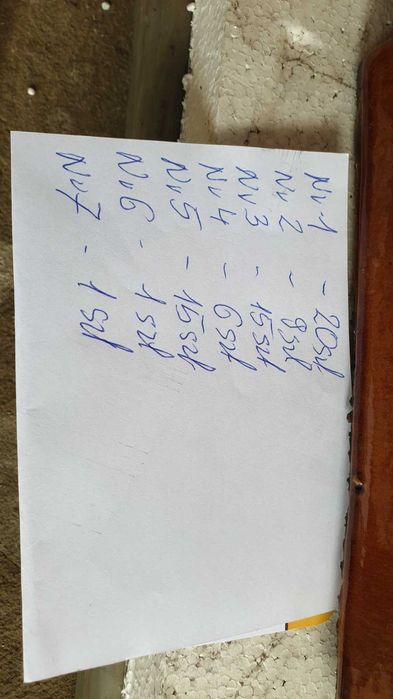 Nr 1 - 20szt
Nr 2 - 9szt
Nr 3 - 15szt
Nr 4 - 6szt
Nr 5 - 15szt
Nr 6 - 1szt
Nr 7 - 1szt